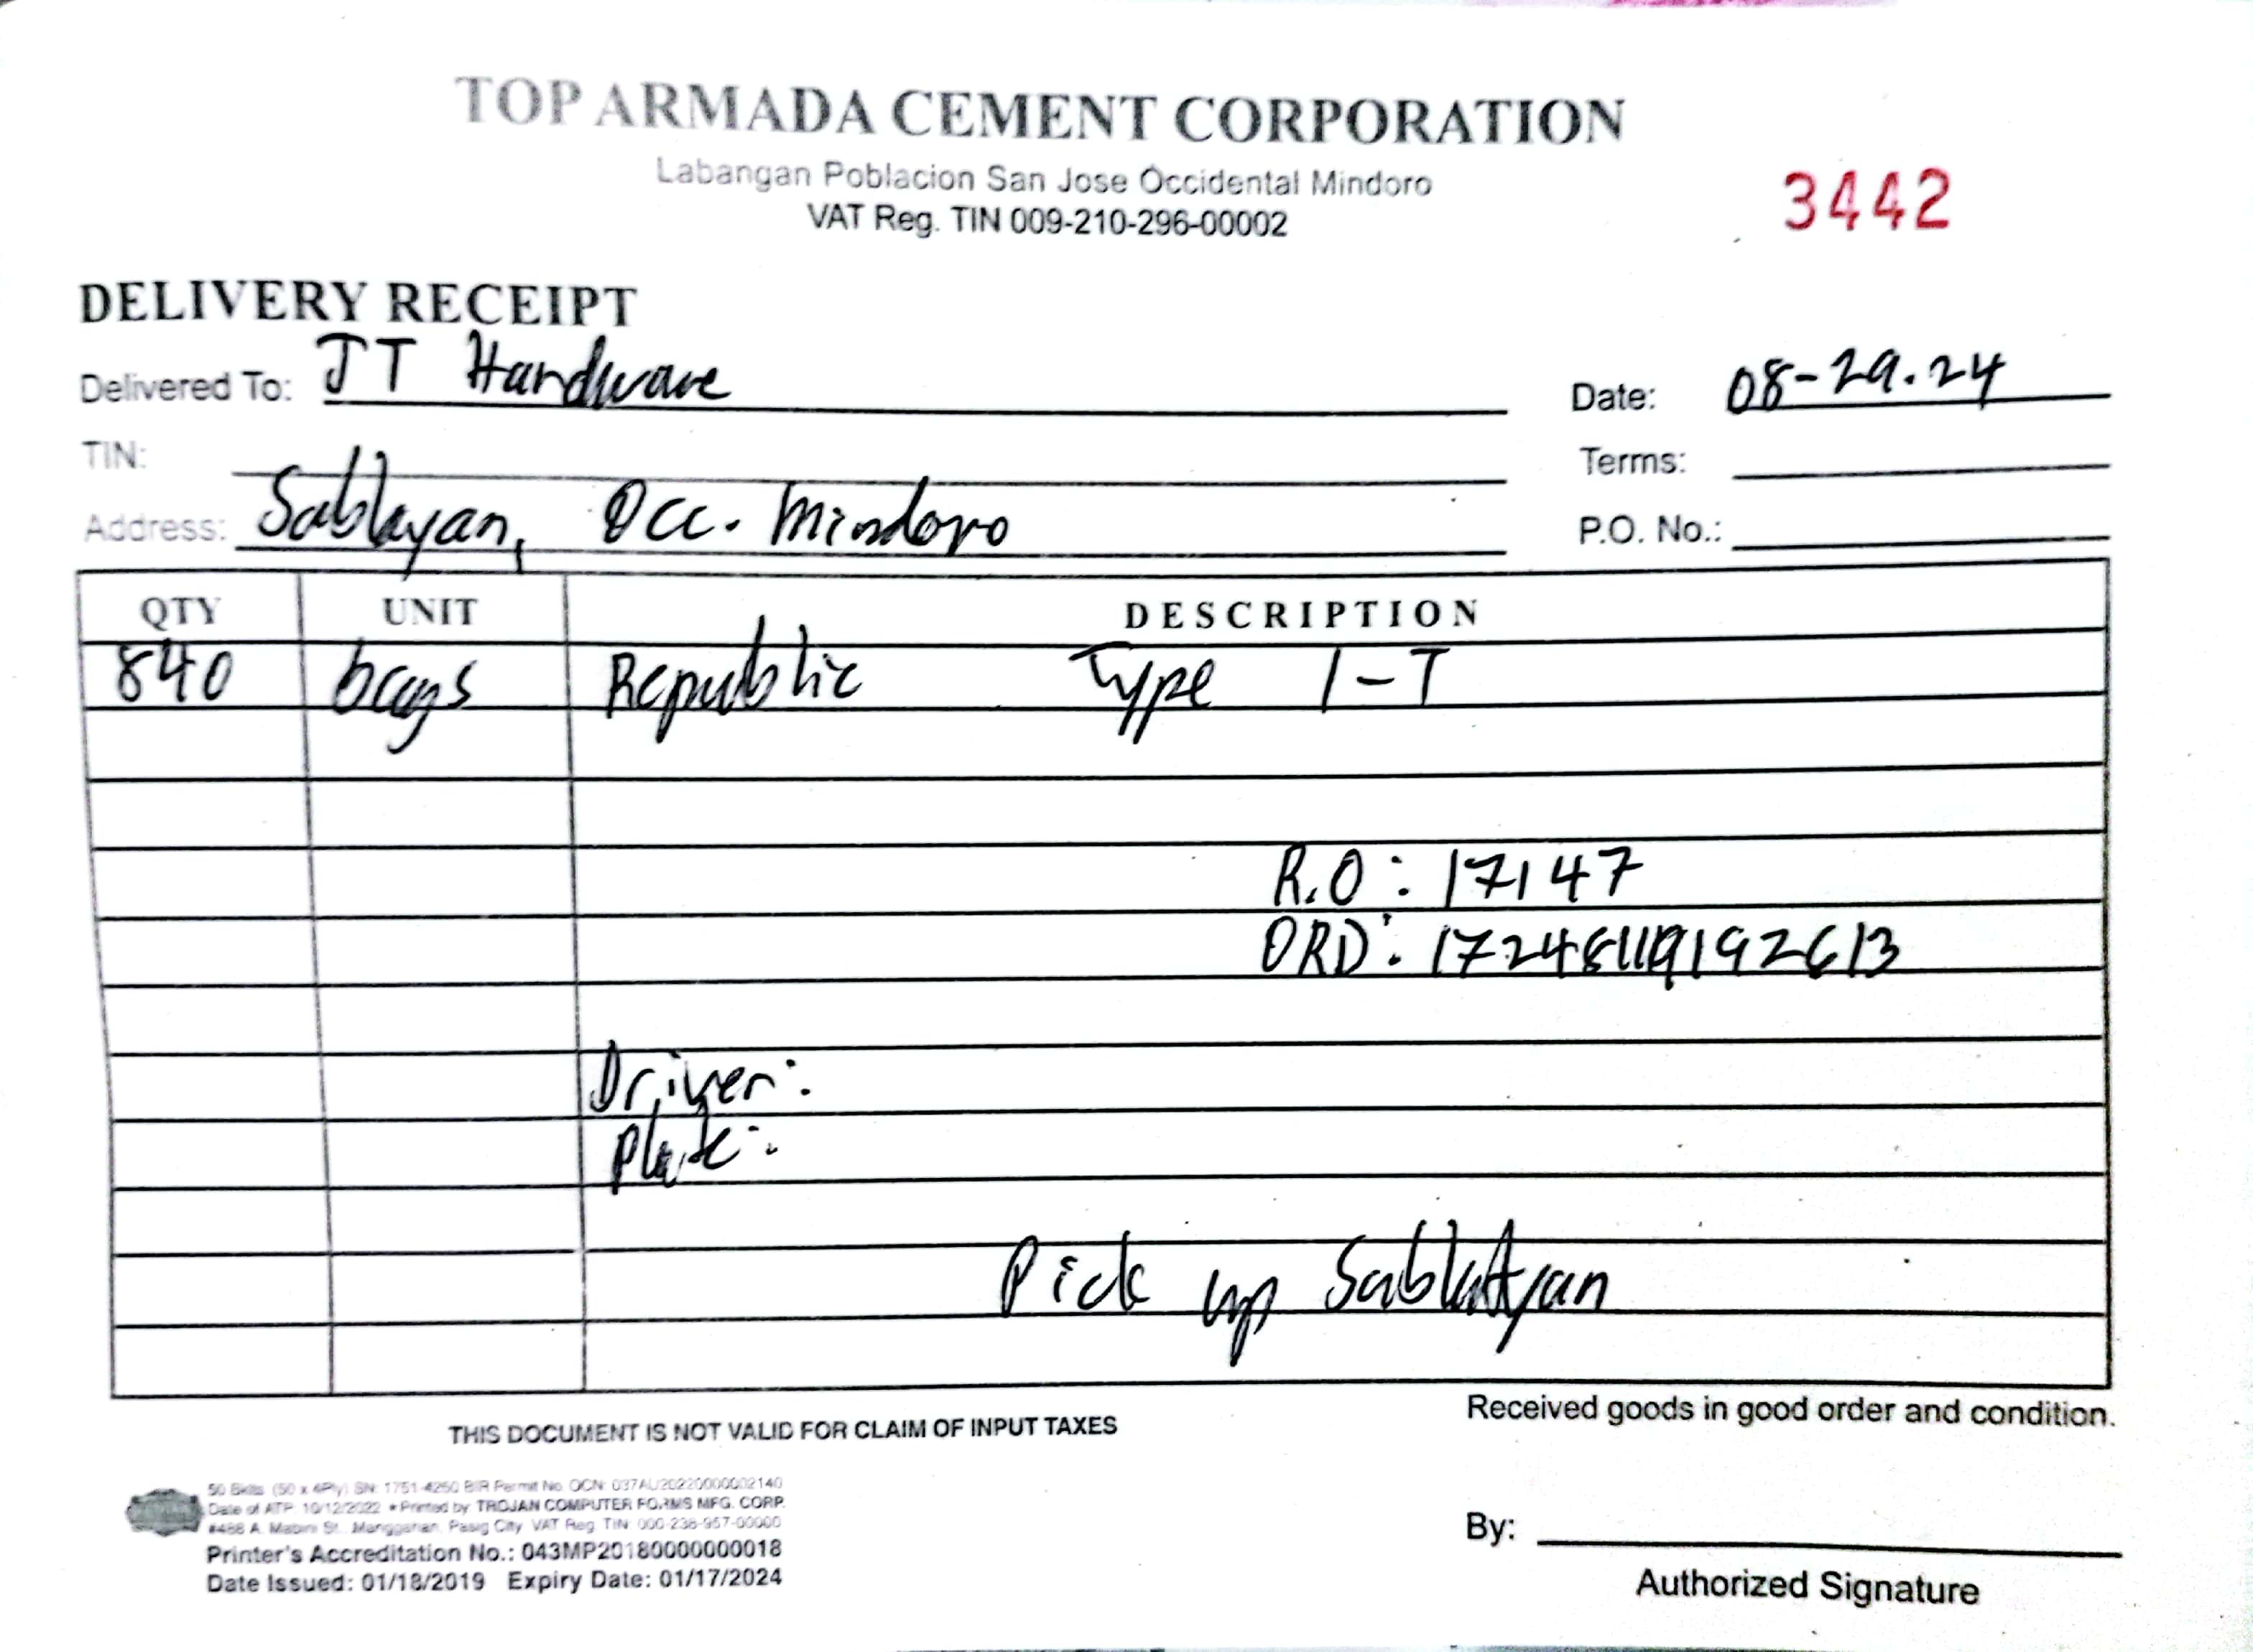 TOP ARMADA CEMENT CORPORATION
Labangan Poblacion San Jose Occidental Mindoro
VAT Reg. TIN 009-210-296-00002
3442
DELIVERY RECEIPT
Delivered To: JT Hardware
Date: 08-29.24
TIN:
Terms:
Address: Sablayan, Occ. Mindoro
P.O. No.:
QTY UNIT DESCRIPTION
840 bags Republic Type 1-T
R.O: 17147
ORD:
Driver:
Plate:
Pick up Sablayan
THIS DOCUMENT IS NOT VALID FOR CLAIM OF INPUT TAXES
Received goods in good order and condition.
50 Bklts (50 x 4Ply) SN: 1751-4250 BIR Permit No. OCN: 037AU20220000002140
Date of ATP: 10/12/2022 • Printed by: TROJAN COMPUTER FORMS MFG. CORP.
#488 A. Mabini St., Manggahan, Pasig City VAT Reg. TIN: 000-238-957-00000
Printer's Accreditation No.: 043MP20180000000018
Date Issued: 01/18/2019 Expiry Date: 01/17/2024
By:
Authorized Signature